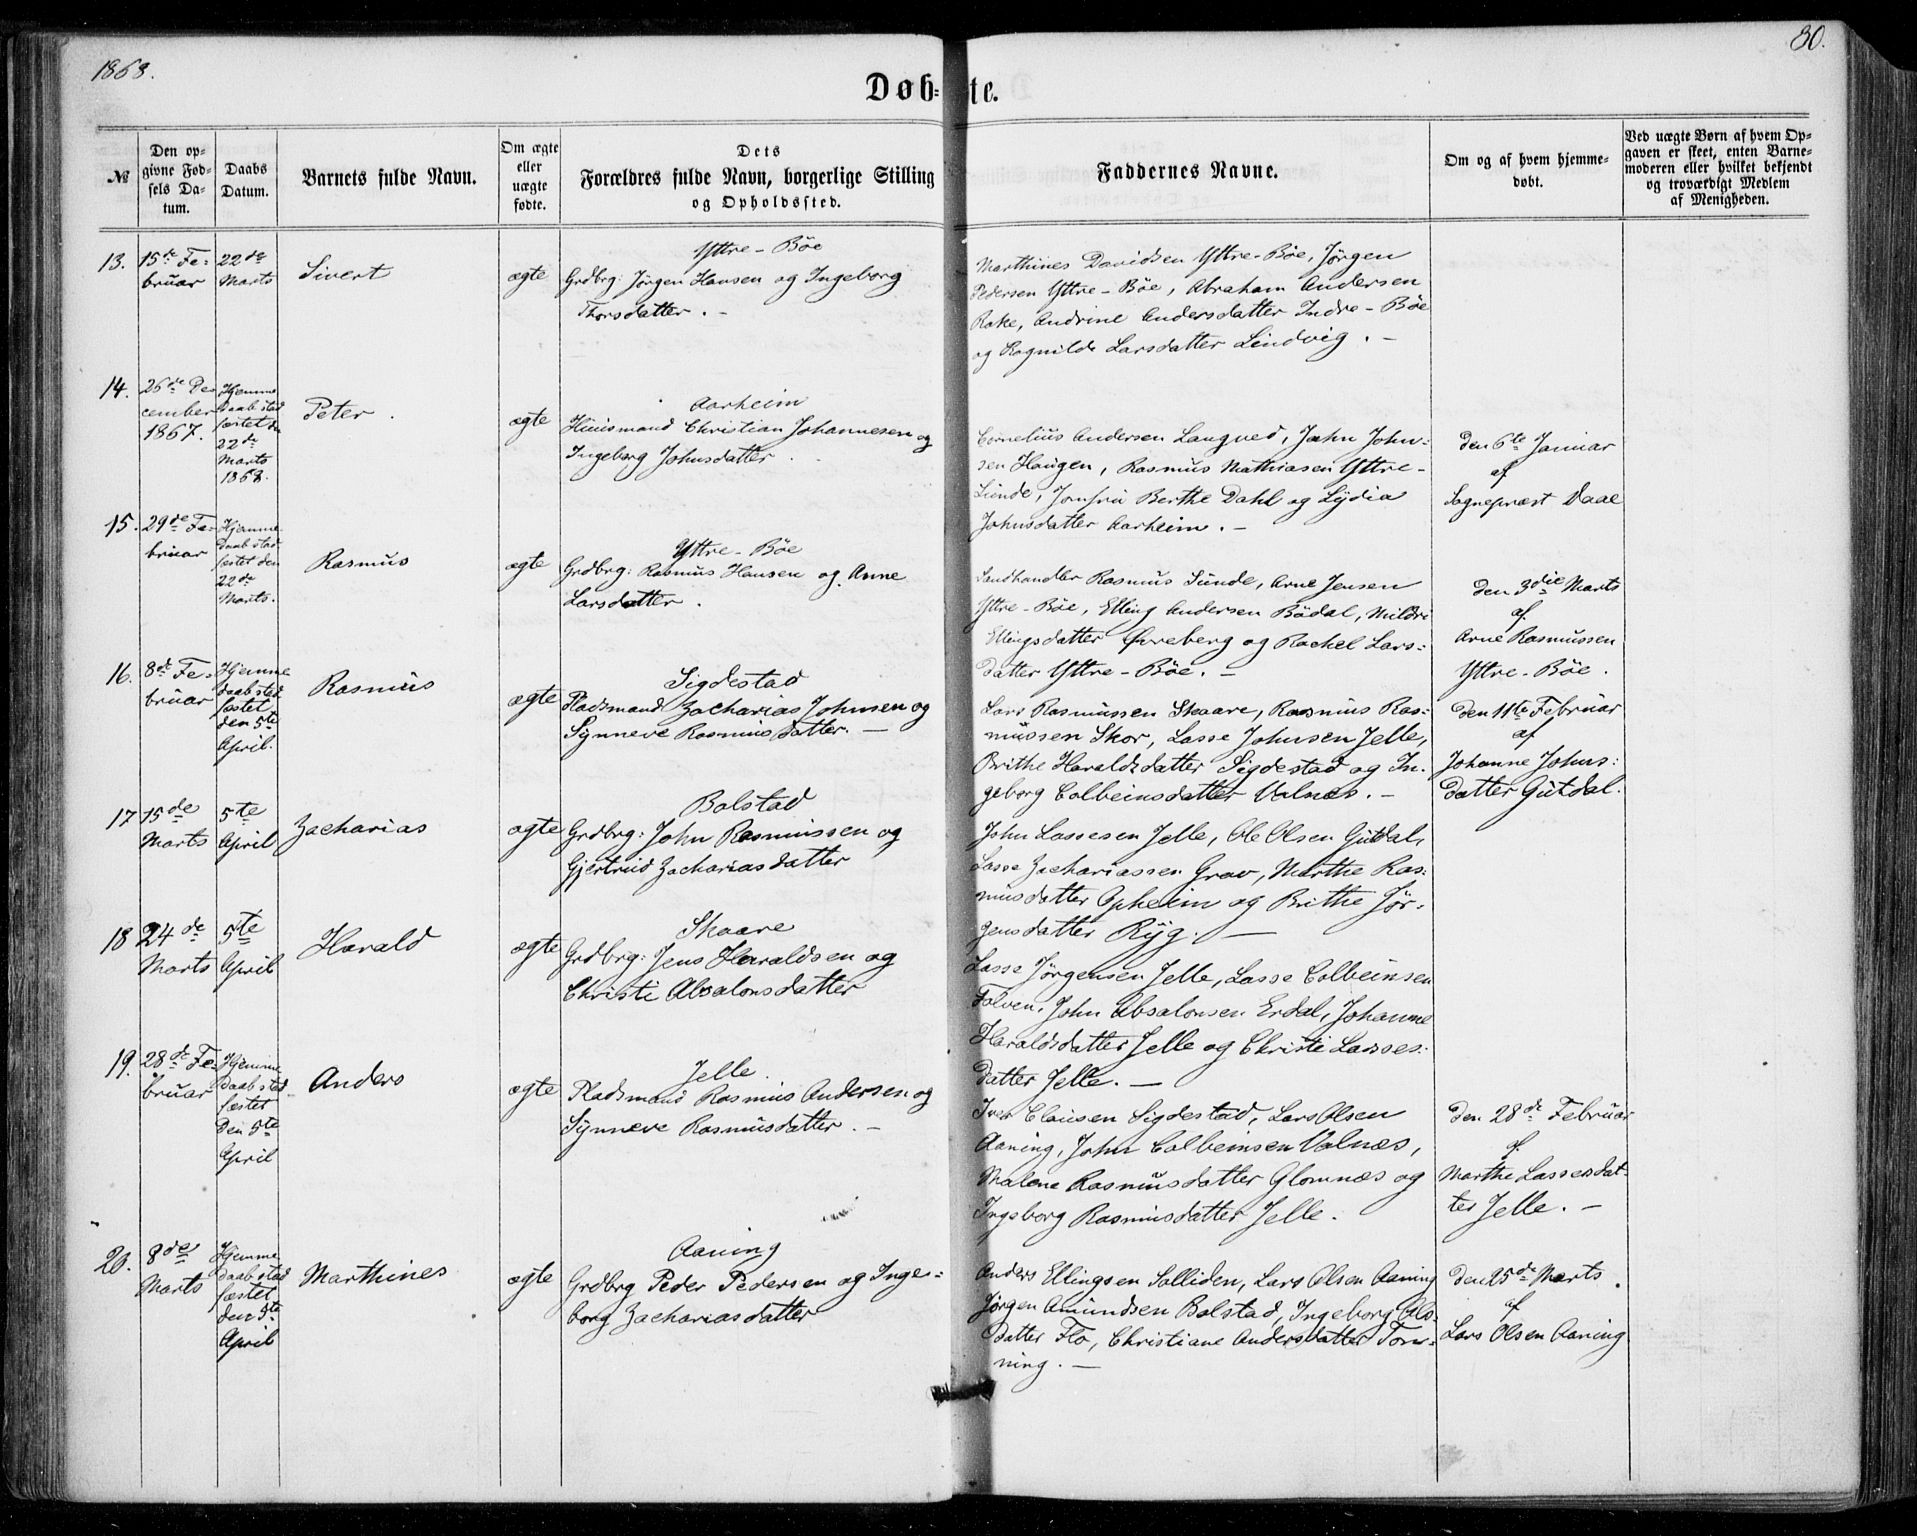 1868.
80.
Døbte.
№
Den op-
givne Fød-
sels Da-
tum.
Daabs
Datum.
Barnets fulde Navn.
Om ægte
eller
uægte
fødte.
Dets
Forældres fulde Navn, borgerlige Stilling
og Opholdssted.
Faddernes Navne.
Om og af hvem hjemme-
døbt.
Ved uægte Børn af hvem Op-
gaven er skeet, enten Barne-
moderen eller hvilket bekjendt
og troværdigt Medlem
af Menigheden.
13.
15de Fe-
bruar
22de
Marts
Sivert
ægte
Yttre-Böe
Grdbrg: Jørgen Hansen og Ingeborg
Thorsdatter. -
Marthines Davidsen Yttre-Böe, Jørgen
Pedersen Yttre-Böe, Abraham Andersen
Rake, Andrine Andersdatter Indre-Böe
og Ragnilde Larsdatter Lindvig. -
14.
26de De-
cember
1867.
Hjemme
daab stad
fæstet den
22de
Marts
1868.
Peter.
ægte
Aarheim
Huusmand Christian Johannesen og
Ingeborg Johnsdatter.
Cornelius Andersen Langved, John John-
sen Haugen, Rasmus Mathiasen Yttre-
Sunde, Jomfru Berthe Dahl og Lydia
Johnsdatter Aarheim. -
Den 6te Januar
af
Sognepræst Daae
15.
29de Fe-
bruar
Hjemme
daab stad
fæstet den
22de
Marts.
Rasmus
ægte
Yttre-Böe
Grdbrg: Rasmus Hansen og Anne
Larsdatter.
Landhandler Rasmus Sunde, Arne Jensen
Yttre-Böe, Elling Andersen Bödal, Mildri
Ellingsdatter Øvreberg og Rachel Lars-
datter Yttre-Böe. -
Den 3die Marts
af
Arne Rasmussen
Yttre-Böe.
16.
8de Fe-
bruar
Hjemme
daab stad
fæstet
den 5te
April.
Rasmus
ægte
Sigdestad
Pladsmand Zacharias Johnsen og
Synneve Rasmusdatter. -
Lars Rasmussen Skaare, Rasmus Ras-
mussen Skor, Lasse Johnsen Jelle,
Brithe Haraldsdatter Sigdestad og In-
geborg Colbeinsdatter Valnæs. -
Den 11te Februar
af
Johanne Johns:
datter Gutdal.
17
15de
Marts
5te
April
Zacharias
ægte
Bolstad
Grdbrg: John Rasmussen og
Gjertrud Zachariasdatter
John Lassesen Jelle, Ole Olsen Gutdal,
Lasse Zachariassen Grav, Marthe Ras:
musdatter Opheim og Brithe Jør-
gensdatter Ryg. -
18
24de
Marts
5te
April
Harald
ægte
Skaare
Grdbrg: Jens Haraldsen og
Christi Absalonsdatter
Lasse Jørgensen Jelle, Lasse Colbeinsen
Folven, John Absalonsen Erdal, Johanne
Haraldsdatter Jelle og Christi Lasses:
datter Jelle. -
19.
28de Fe-
bruar
Hjemme
daab stad
fæstet
den 5te
April
Anders
ægte
Jelle.
Pladsmand Rasmus Andersen og
Synneve Rasmusdatter. -
Iver Clausen Sigdestad, Lars Olsen
Aaning, John Colbeinsen Valnæs,
Malene Rasmusdatter Glomnæs og
Ingeborg Rasmusdatter Jelle.
Den 28de Februar
af.
Marthe Lassesdat-
ter Jelle. -
20.
8de
Marts
Hjemme
daab stad
fæstet
den 5te
April
Marthines
ægte
Aaning
Grdbrg Peder Pedersen og Inge-
borg Zachariasdatter
Anders Ellingsen Solliden, Lars Olsen Aaning
Jørgen Amundsen Bolstad, Ingeborg Ols-
datter Flo, Christiane Andersdatter Ton-
ning. -
Den 25de Marts.
af
Lars Olsen Aaning